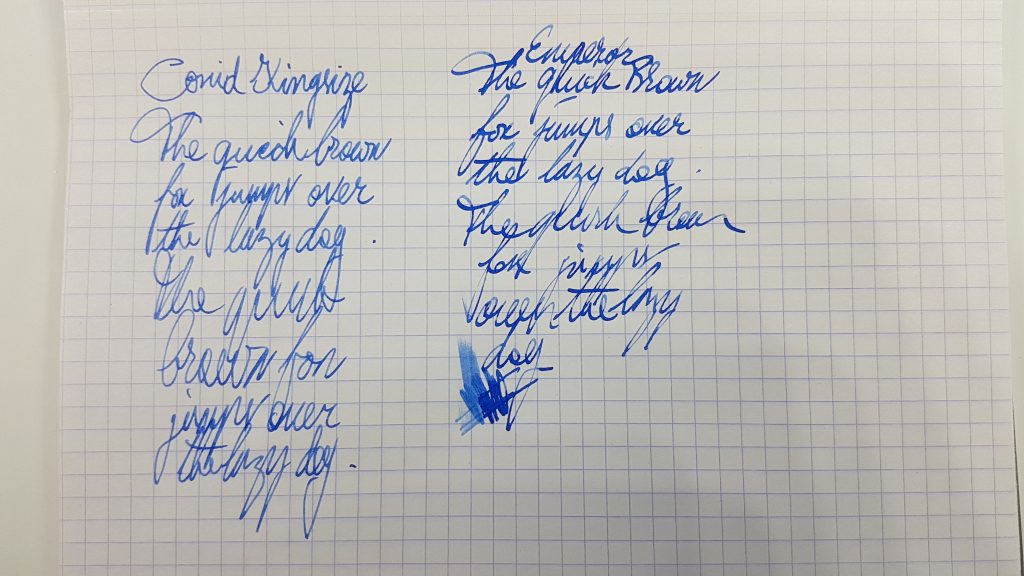 Conid Kingsize
The quick brown
fox jumps over
the lazy dog.
The quick
brown fox
jumps over
the lazy dog.
Emperor
The quick Brown
fox jumps over
the lazy dog.
The quick brown
fox jumps
over the lazy
dog